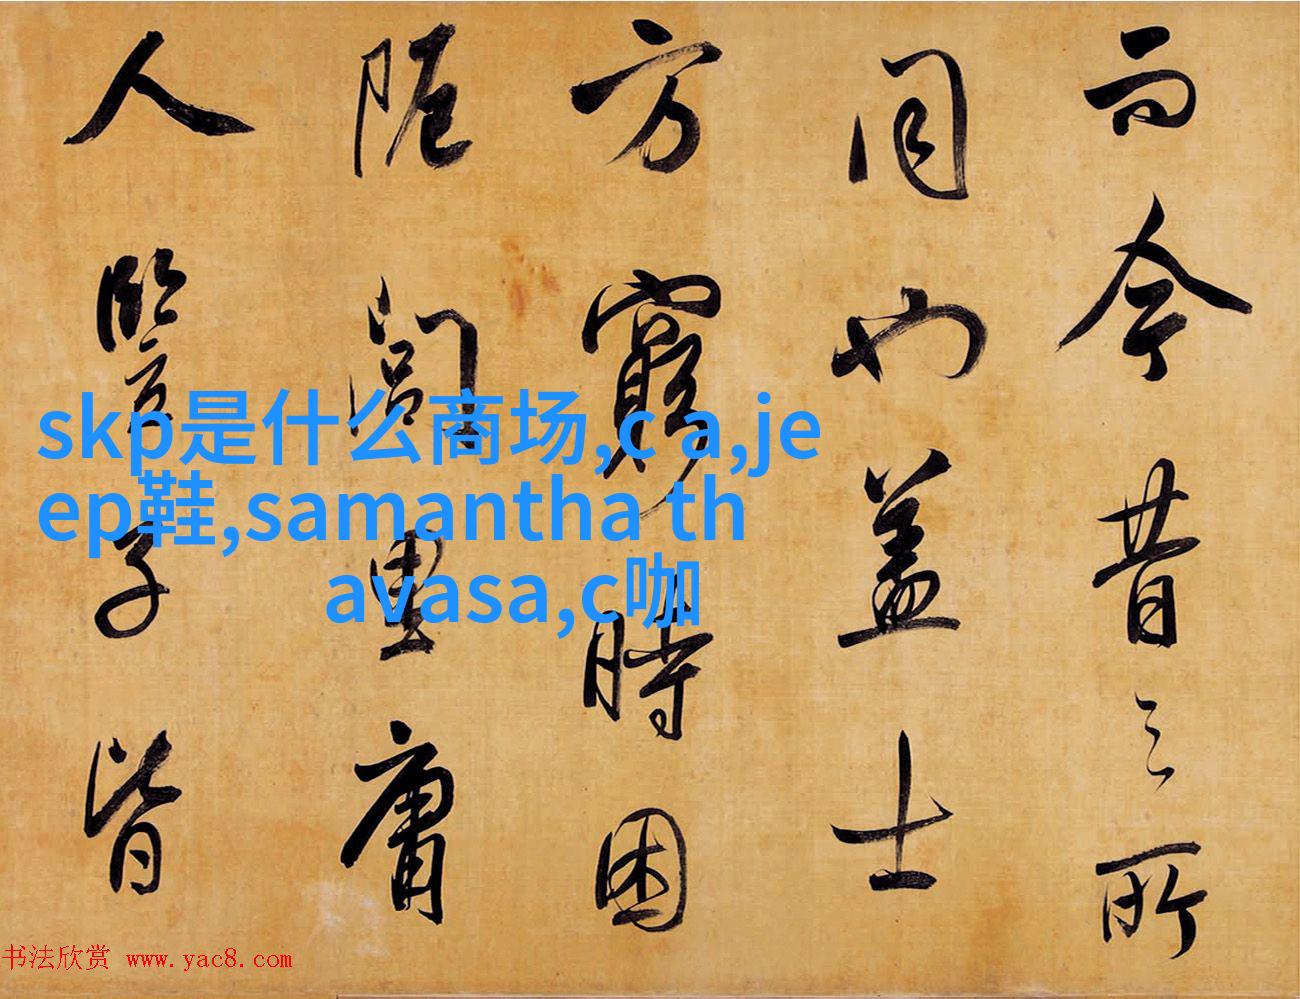 而今昔之所
同也盖士
方窮時困
阨閭里庸
人子皆
skp是什么商场,c a,je
ep鞋,samantha th
avasa,c咖
书法欣赏 www.yac8.com